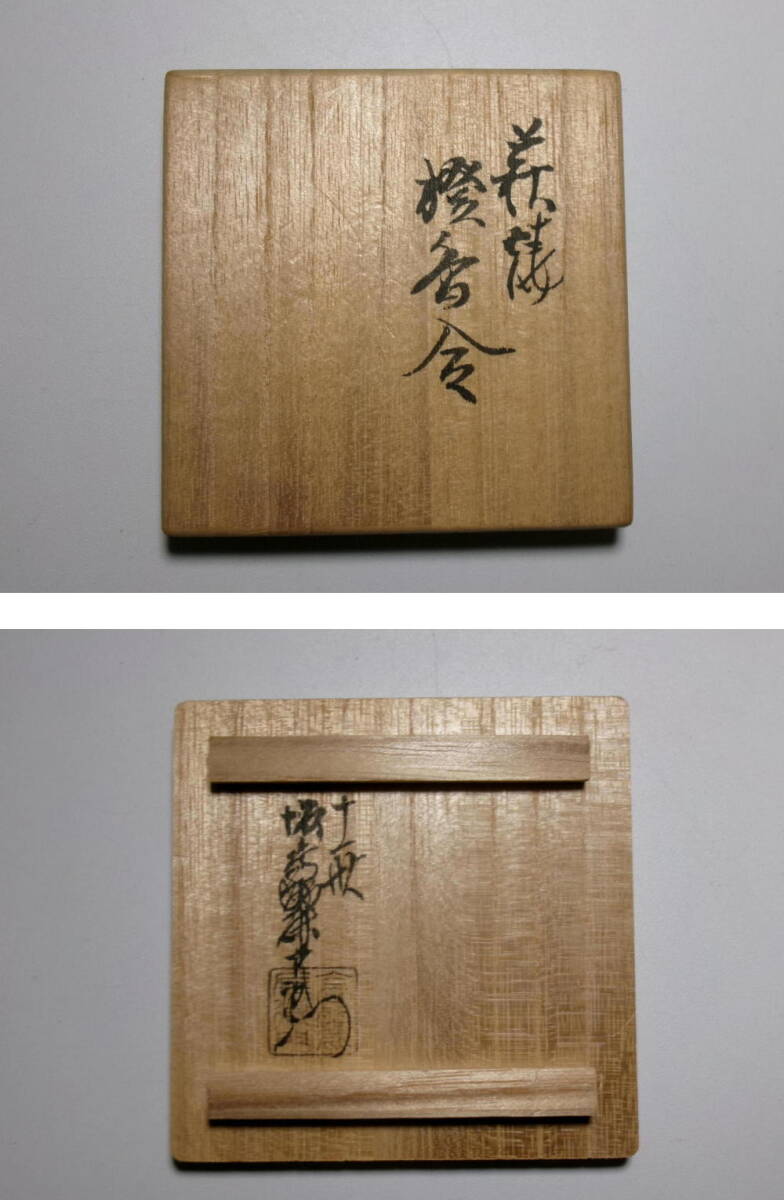 萩焼
橙香合
十一世
坂高麗左衛門